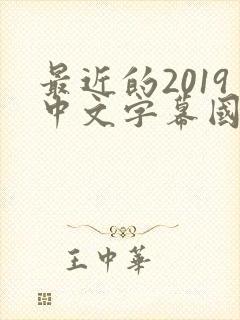 最近的2019
中文字幕國
王中華